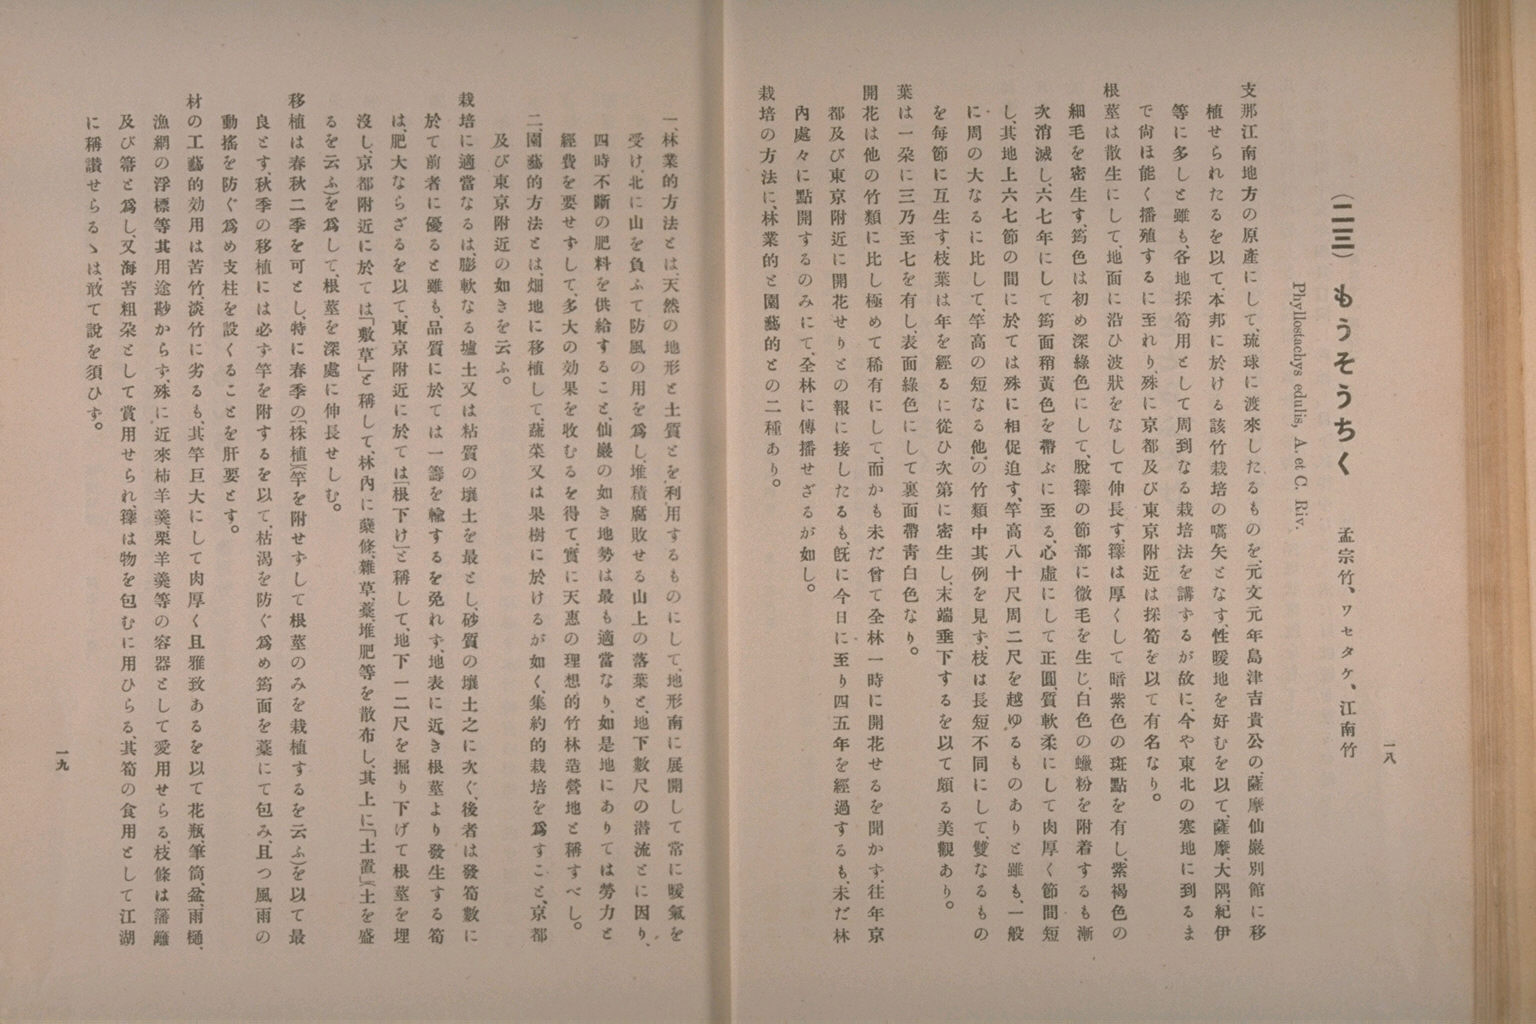 一八
(二三) もうそうちく 孟宗竹、ワセタケ、江南竹
Phyllostachys edulis, A. et C. Riv.
支那江南地方の原產にして、琉球に渡來したるものを、元文元年島津吉貴公の、薩摩仙巖別館に移
植せられたるを以て、本邦に於ける該竹栽培の嚆矢となす、性暖地を好むを以て、薩摩、大隅、紀伊
等に多しと雖も、各地採筍用として周到なる栽培法を講ずるが故に、今や東北の寒地に到るま
で尙ほ能く播殖するに至れり、殊に京都及び東京附近は採筍を以て有名なり。
根莖は散生にして、地面に沿ひ波狀をなして伸長す、籜は厚くして暗紫色の斑點を有し、紫褐色の
細毛を密生す、筠色は初め深綠色にして、脫籜の節部に微毛を生じ、白色の蠟粉を附着するも漸
次消滅し、六七年にして筠面稍黃色を帶ぶに至る、心虛にして正圓、質軟柔にして肉厚く節間短
し、其地上六七節の間に於ては殊に相促迫す、竿高八十尺周二尺を越ゆるものありと雖も、一般
に周の大なるに比して、竿高の短なる他の竹類中其例を見ず、枝は長短不同にして、雙なるもの
を每節に互生す、枝葉は年を經るに從ひ次第に密生し、末端垂下するを以て頗る美觀あり。
葉は一朶に三乃至七を有し、表面綠色にして裏面帶靑白色なり。
開花は他の竹類に比し極めて稀有にして、而かも未だ曾て全林一時に開花せるを聞かず、往年京
都及び東京附近に開花せりとの報に接したるも、旣に今日に至り四五年を經過するも、未だ林
內處々に點開するのみにて、全林に傳播せざるが如し。
栽培の方法に、林業的と園藝的との二種あり。
一、林業的方法とは、天然の地形と土質とを利用するものにして、地形南に展開して常に暖氣を
受け、北に山を負ふて防風の用を爲し、堆積腐敗せる山上の落葉と、地下數尺の潛流とに因り、
四時不斷の肥料を供給すること、仙巖の如き地勢は最も適當なり、如是地にありては勞力と
經費を要せずして、多大の効果を收むるを得て、實に天惠の理想的竹林造營地と稱すべし。
二、園藝的方法とは、畑地に移植して、蔬菜又は果樹に於けるが如く、集約的栽培を爲すこと、京都
及び東京附近の如きを云ふ。
栽培に適當なるは、膨軟なる壚土又は粘質の壤土を最とし、砂質の壤土之に次ぐ、後者は發筍數に
於て前者に優ると雖も、品質に於ては一籌を輸するを免れず、地表に近き根莖より發生する筍
は、肥大ならざるを以て、東京附近に於ては「根下げ」と稱して、地下一二尺を掘り下げて根莖を埋
沒し、京都附近に於ては「敷草」と稱して、林內に藁、條、雜草、藁、堆肥等を散布し、其上に「土置」(土を盛
るを云ふ)を爲して、根莖を深處に伸長せしむ。
移植は春秋二季を可とし、特に春季の「株植」(竿を附せずして根莖のみを栽植するを云ふ)を以て最
良とす、秋季の移植には必ず竿を附するを以て、枯渴を防ぐ爲め筠面を藁にて包み、且つ風雨の
動搖を防ぐ爲め支柱を設くることを肝要とす。
材の工藝的効用は苦竹淡竹に劣るも、其竿巨大にして肉厚く且雅致あるを以て花瓶、筆筒、盆、雨樋、
漁網の浮標等其用途尠からず、殊に近來柿羊羹、栗羊羹等の容器として愛用せらる、枝條は籓籬
及び箒と爲し、又海苔粗朶として賞用せられ、籜は物を包むに用ひらる、其筍の食用として江湖
に稱讚せらるゝは、敢て說を須ひず。
一九